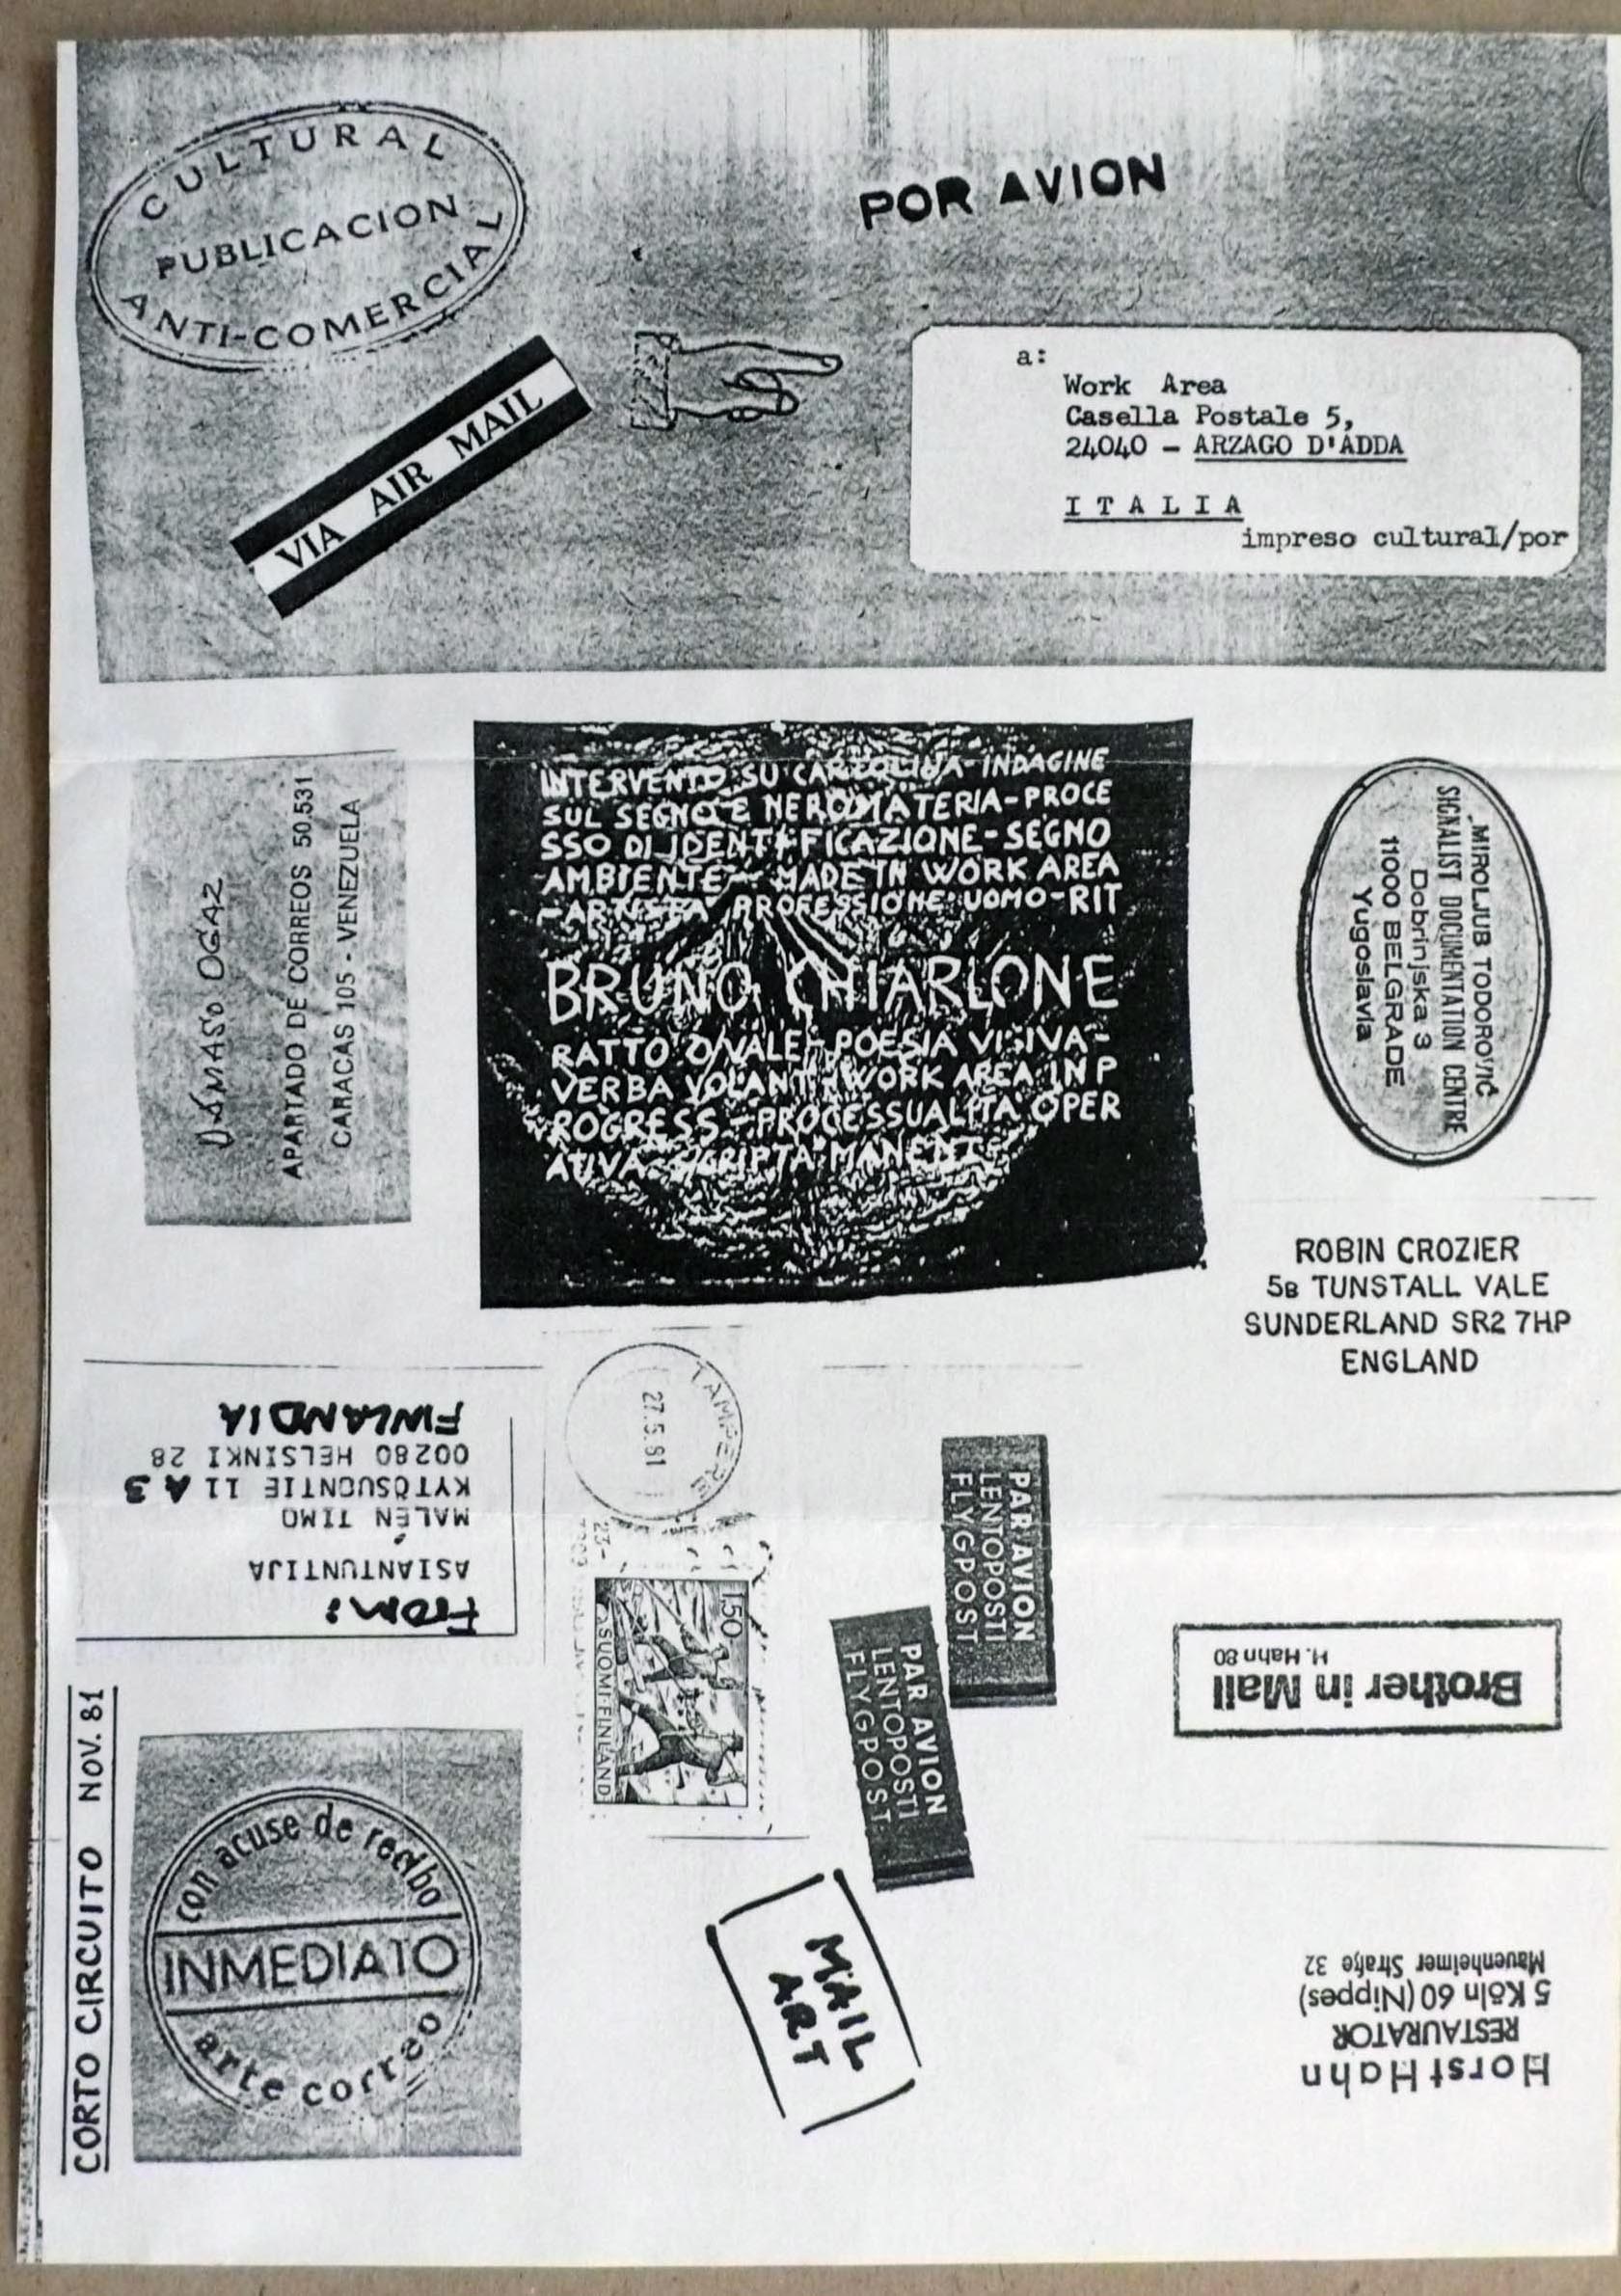 CULTURAL
PUBLICACION
ANTI-COMERCIAL
POR AVION
VIA AIR MAIL
a:
Work Area
Casella Postale 5,
24040 - ARZAGO D'ADDA
ITALIA
impreso cultural/por
DÁMASO OGAZ
APARTADO DE CORREOS 50.531
CARACAS 105 - VENEZUELA
INTERVENTO SU CARTOLINA-INDAGINE
SUL SEGNO E NEROMATERIA-PROCE
SSO DI IDENTIFICAZIONE-SEGNO
AMBIENTE - MADE IN WORK AREA
-ARTISTA PROFESSIONE UOMO-RIT
BRUNO CHIARLONE
RATTO OVALE-POESIA VISIVA-
VERBA VOLANT-WORK AREA IN P
ROGRESS-PROCESSUALITA OPER
ATIVA-SCRIPTA MANENT
MIROLJUB TODOROVIĆ
SIGNALIST DOCUMENTATION CENTRE
Dobrinjska 3
11000 BELGRADE
Yugoslavia
ROBIN CROZIER
5B TUNSTALL VALE
SUNDERLAND SR2 7HP
ENGLAND
FROM:
ASIANTUNTIJA
MALÉN TIMO
KYTÖSUONTIE 11 A 3
00280 HELSINKI 28
FINLANDIA
TAMPERE
27.5.81
150
SUOMI FINLAND
PAR AVION
LENTOPOSTI
FLYGPOST
PAR AVION
LENTOPOSTI
FLYGPOST
Brother in Mail
H. Hahn 80
CORTO CIRCUITO NOV. 81
con acuse de recibo
INMEDIATO
arte correo
MAIL
ART
Horst Hahn
RESTAURATOR
5 Köln 60 (Nippes)
Mauenheimer Straße 32